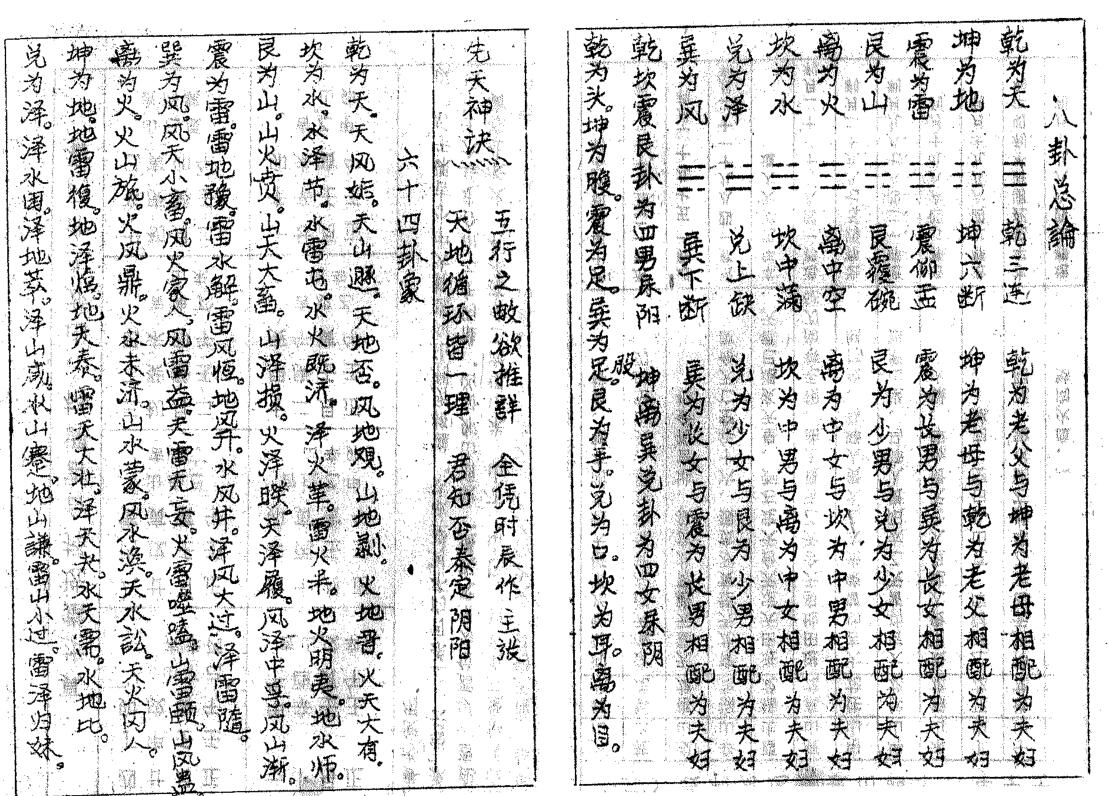 八卦总論
乾为天 ☰ 乾三连 乾为老父与坤为老母相配为夫妇
坤为地 ☷ 坤六断 坤为老母与乾为老父相配为夫妇
震为雷 ☳ 震仰盂 震为长男与巽为长女相配为夫妇
艮为山 ☶ 艮覆碗 艮为少男与兑为少女相配为夫妇
离为火 ☲ 离中空 离为中女与坎为中男相配为夫妇
坎为水 ☵ 坎中满 坎为中男与离为中女相配为夫妇
兑为泽 ☱ 兑上缺 兑为少女与艮为少男相配为夫妇
巽为风 ☴ 巽下断 巽为长女与震为长男相配为夫妇
乾坎震艮卦为四男属阳 坤离巽兑卦为四女属阴
乾为头。坤为腹。震为足。巽为足。股 艮为手。兑为口。坎为耳。离为目。
先天神诀 五行之敵欲推詳 全凭时辰作主張
天地循环皆一理 君知否泰定阴阳
六十四卦象
乾为天。天风姤。天山遯。天地否。风地观。山地剥。火地晋。火天大有。
坎为水。水泽节。水雷屯。水火既济。泽火革。雷火丰。地火明夷。地水师。
艮为山。山火贲。山天大畜。山泽損。火泽睽。天泽履。风泽中孚。风山渐。
震为雷。雷地豫。雷水解。雷风恒。地风升。水风井。泽风大过。泽雷隨。
巽为风。风天小畜。风火家人。风雷益。天雷无妄。火雷噬嗑。山雷颐。山风蠱。
离为火。火山旅。火风鼎。火水未济。山水蒙。风水涣。天水訟。天火同人。
坤为地。地雷復。地泽临。地天泰。雷天大壮。泽天夬。水天需。水地比。
兑为泽。泽水困。泽地萃。泽山咸。水山蹇。地山謙。雷山小过。雷泽归妹。